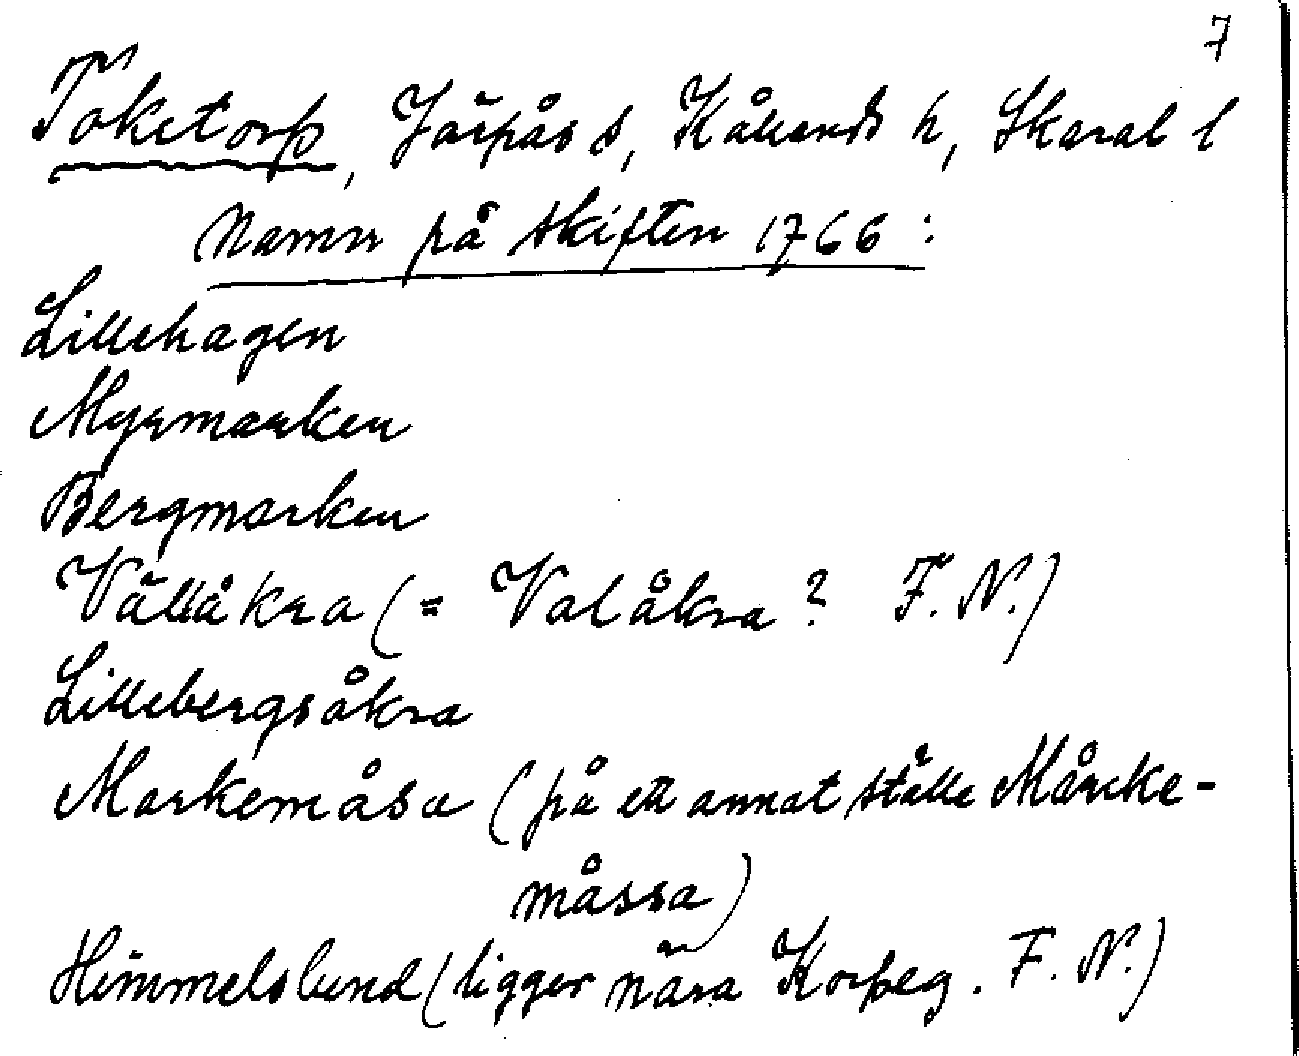 7
Toketorp, Järpås s, Kållands h, Skarab l
Namn på skiften 1766:
Lillehagen
Myrmarken
Bergmarken
Vällåkra (= Valåkra? F. N.)
Lillebergsåkra
Markemåsa (på ett annat ställe Mårcke-
måssa)
Himmelslund (ligger nära Korpeg. F. N.)